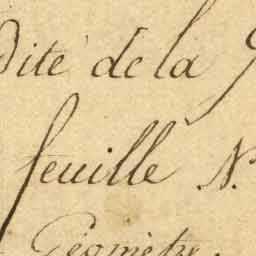 dite de la
feuille N.
Géomètre.